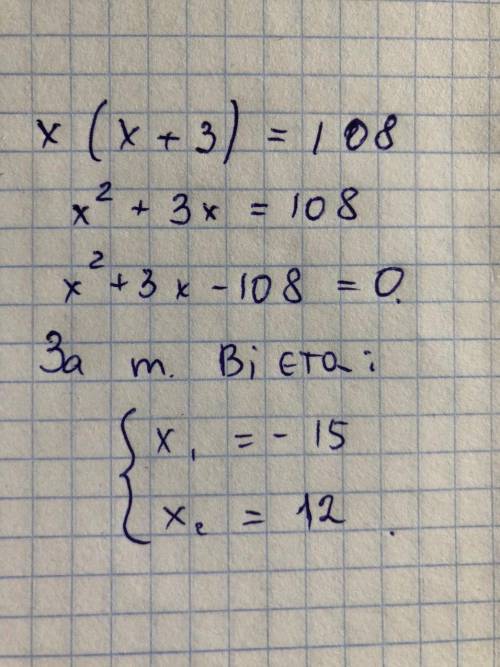 x (x + 3) = 108
x² + 3x = 108
x² + 3x - 108 = 0.
За т. Вієта:
{ x₁ = - 15
x₂ = 12.